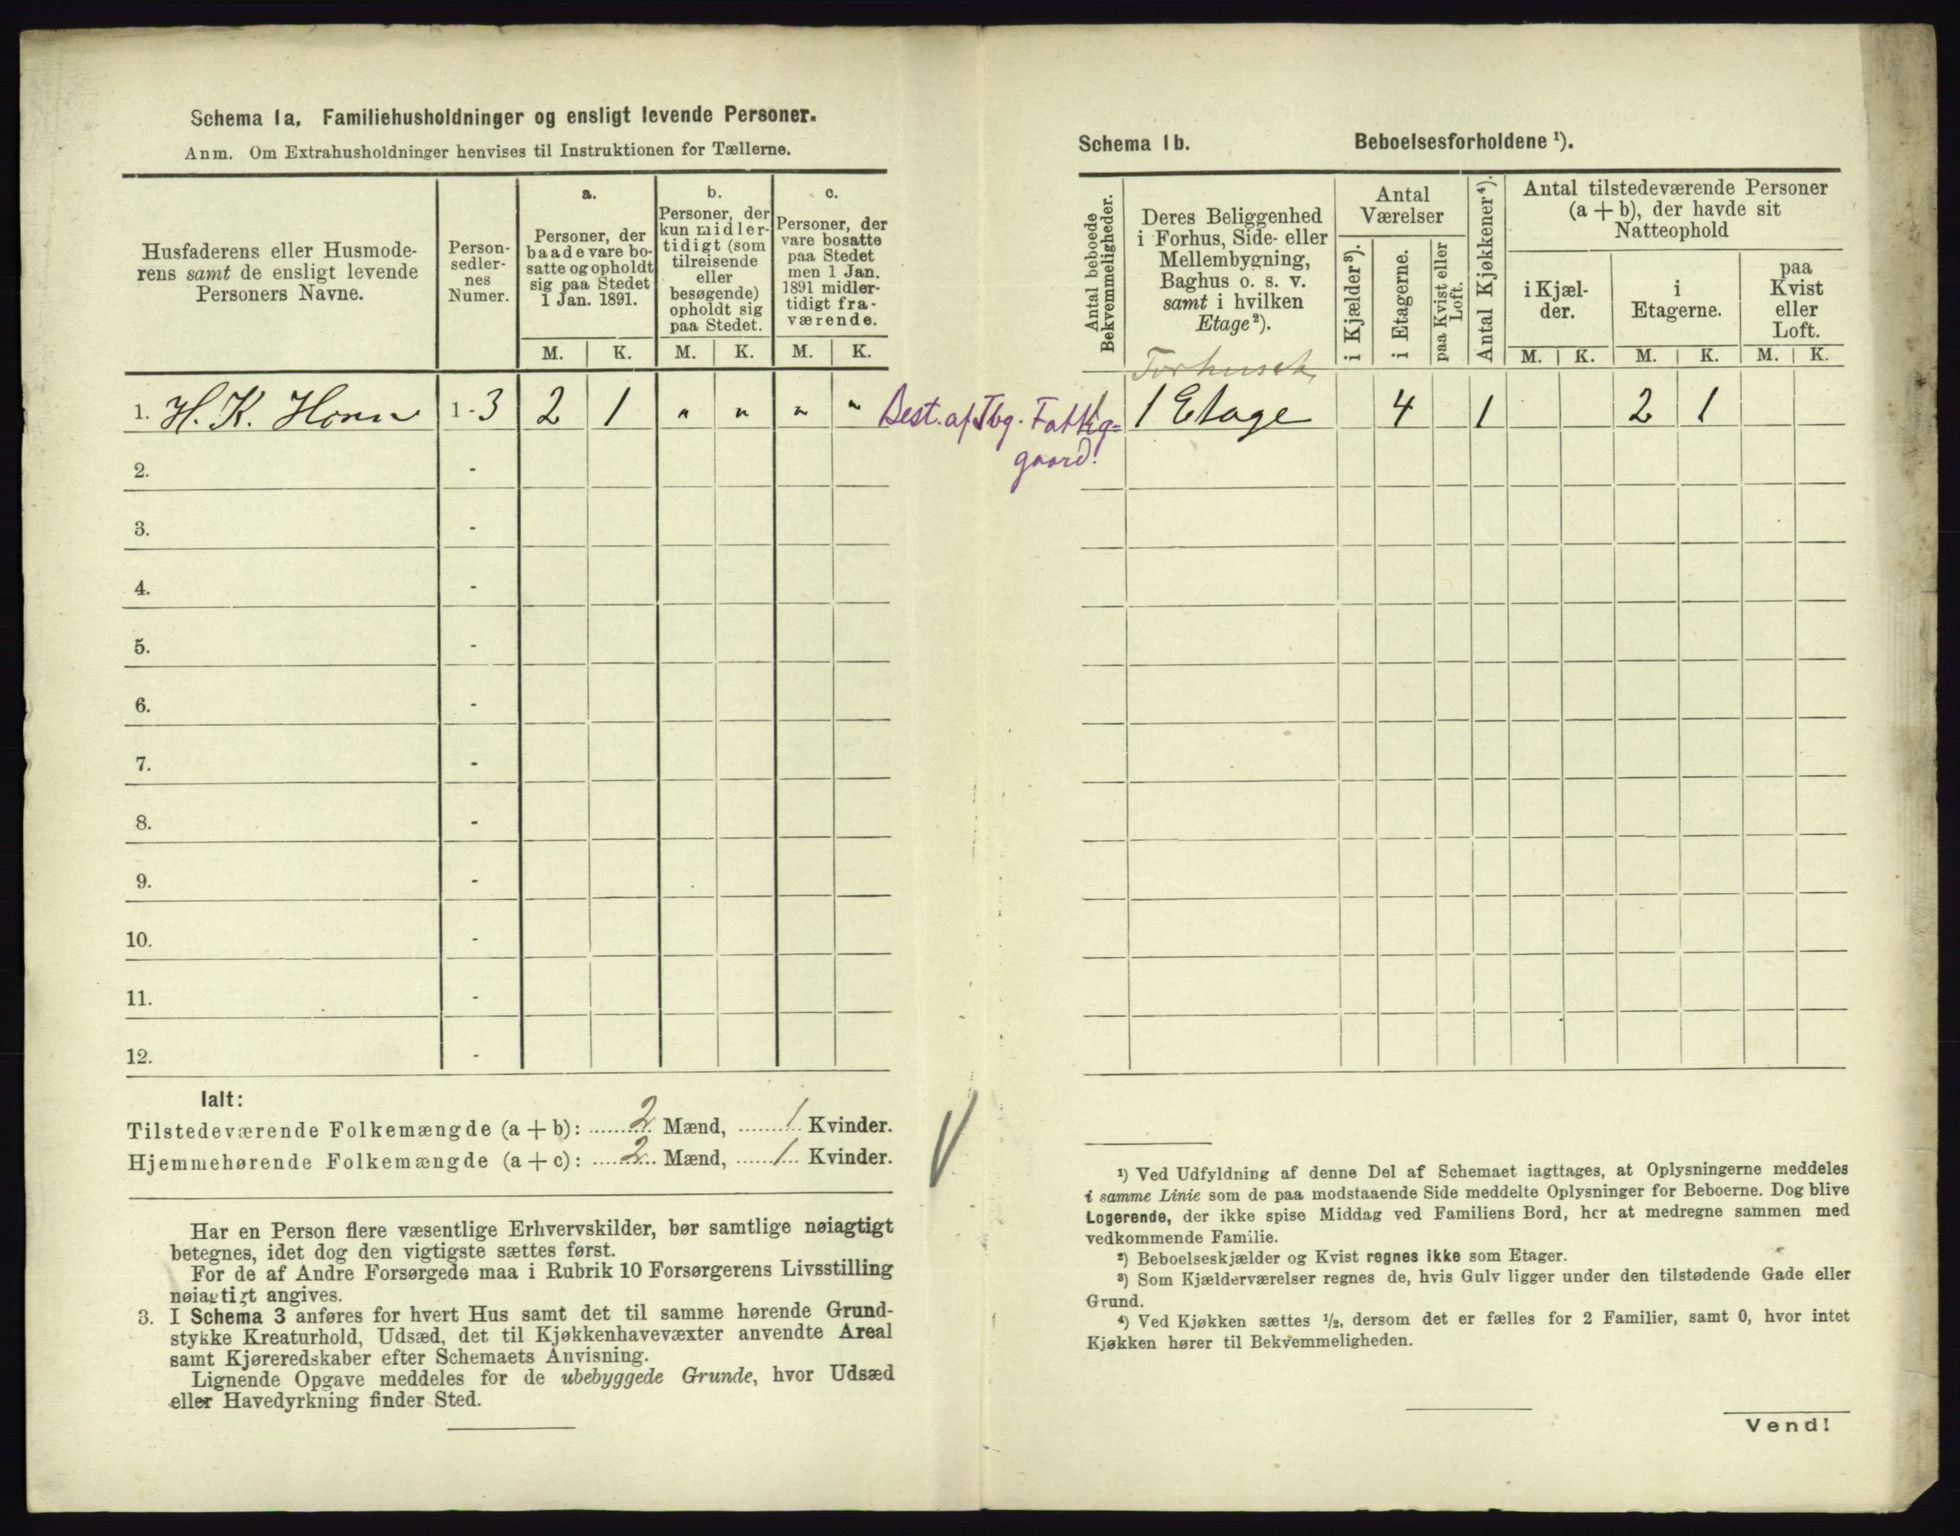 Schema 1a. Familiehusholdninger og ensligt levende Personer.
Anm. Om Extrahusholdninger henvises til Instruktionen for Tællerne.
Husfaderens eller Husmode-
rens samt de ensligt levende
Personers Navne.
Person-
sedler-
nes
Numer.
a.
Personer, der
baade vare bo-
satte og opholdt
sig paa Stedet
1 Jan. 1891.
b.
Personer, der
kun midler-
tidigt (som
tilreisende
eller
besøgende)
opholdt sig
paa Stedet.
c.
Personer, der
vare bosatte
paa Stedet
men 1 Jan.
1891 midler-
tidigt fra-
værende.
M. K. M. K. M. K.
1. H. K. Horn 1-3 2 1 " " " "
2. -
3. -
4. -
5. -
6. -
7. -
8. -
9. -
10. -
11. -
12. -
Ialt:
Tilstedeværende Folkemængde (a + b): 2 Mænd, 1 Kvinder.
Hjemmehørende Folkemængde (a + c): 2 Mænd, 1 Kvinder.
Har en Person flere væsentlige Erhvervskilder, bør samtlige nøiagtigt
betegnes, idet dog den vigtigste sættes først.
For de af Andre Forsørgede maa i Rubrik 10 Forsørgerens Livsstilling
nøiagtigt angives.
3. I Schema 3 anføres for hvert Hus samt det til samme hørende Grund-
stykke Kreaturhold, Udsæd, det til Kjøkkenhavevæxter anvendte Areal
samt Kjøreredskaber efter Schemaets Anvisning.
Lignende Opgave meddeles for de ubebyggede Grunde, hvor Udsæd
eller Havedyrkning finder Sted.
Schema 1b. Beboelsesforholdene ¹).
Antal beboede
Bekvemmeligheder.
Deres Beliggenhed
i Forhus, Side- eller
Mellembygning,
Baghus o. s. v.
samt i hvilken
Etage²).
Antal
Værelser
i Kjælder³).
i Etagerne.
paa Kvist eller
Loft.
Antal Kjøkkener⁴).
Antal tilstedeværende Personer
(a + b), der havde sit
Natteophold
i Kjæl-
der.
i
Etagerne.
paa
Kvist
eller
Loft.
M. K. M. K. M. K.
Forhuset,
Best. af Tbg. Fattig-
gaard!
1 1 Etage 4 1 2 1
¹) Ved Udfyldning af denne Del af Schemaet iagttages, at Oplysningerne meddeles
i samme Linie som de paa modstaaende Side meddelte Oplysninger for Beboerne. Dog blive
Logerende, der ikke spise Middag ved Familiens Bord, her at medregne sammen med
vedkommende Familie.
²) Beboelseskjælder og Kvist regnes ikke som Etager.
³) Som Kjælderværelser regnes de, hvis Gulv ligger under den tilstødende Gade eller
Grund.
⁴) Ved Kjøkken sættes ½, dersom det er fælles for 2 Familier, samt 0, hvor intet
Kjøkken hører til Bekvemmeligheden.
Vend!